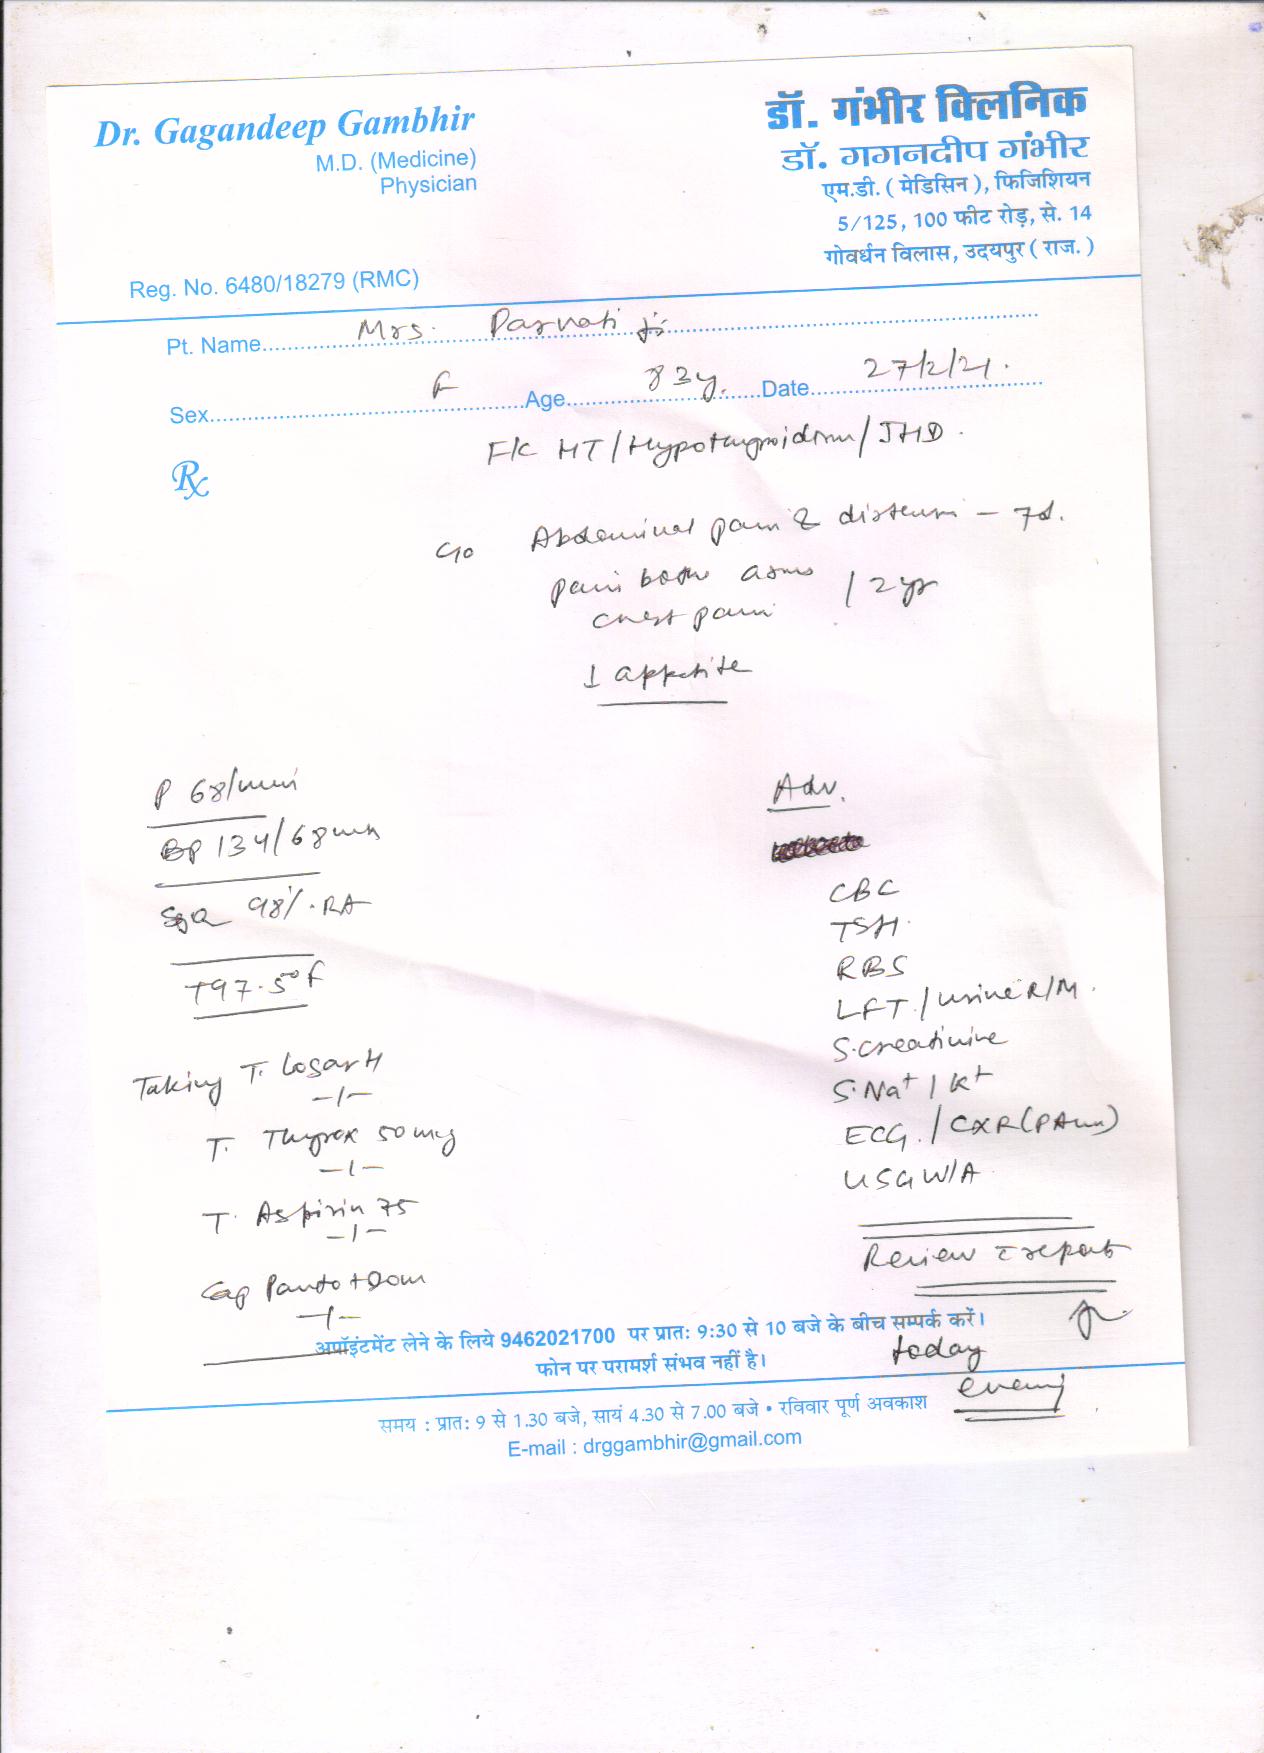 Dr. Gagandeep Gambhir
M.D. (Medicine)
Physician
Reg. No. 6480/18279 (RMC)
डॉ. गंभीर क्लिनिक
डॉ. गगनदीप गंभीर
एम.डी. ( मेडिसिन ), फिजिशियन
5/125, 100 फीट रोड़, से. 14
गोवर्धन विलास, उदयपुर ( राज. )
Pt. Name Mrs. Parvati ji
Sex F Age 83y. Date 27/2/21.
Rx
F/C HT/Hypothyroidism/IHD.
C/o Abdominal pain & distension - 7d.
pain both arms / 2 yr
chest pain
↓ appetite
P 68/min
BP 134/68
SpO2 98%.RA
T97.5°F
Taking T. Losar H
-/-
T. Thyrox 50 mcg
-/-
T. Aspirin 75
-/-
Cap Panto+Dom
-/-
Adv.
CBC
TSH.
RBS
LFT./Urine R/M.
S.creatinine
S.Na+ / K+
ECG./CXR(PA view)
USG W/A
Review c reports
today
evening
अपॉइंटमेंट लेने के लिये 9462021700 पर प्रातः 9:30 से 10 बजे के बीच सम्पर्क करें।
फोन पर परामर्श संभव नहीं है।
समय : प्रातः 9 से 1.30 बजे, सायं 4.30 से 7.00 बजे • रविवार पूर्ण अवकाश
E-mail : drggambhir@gmail.com